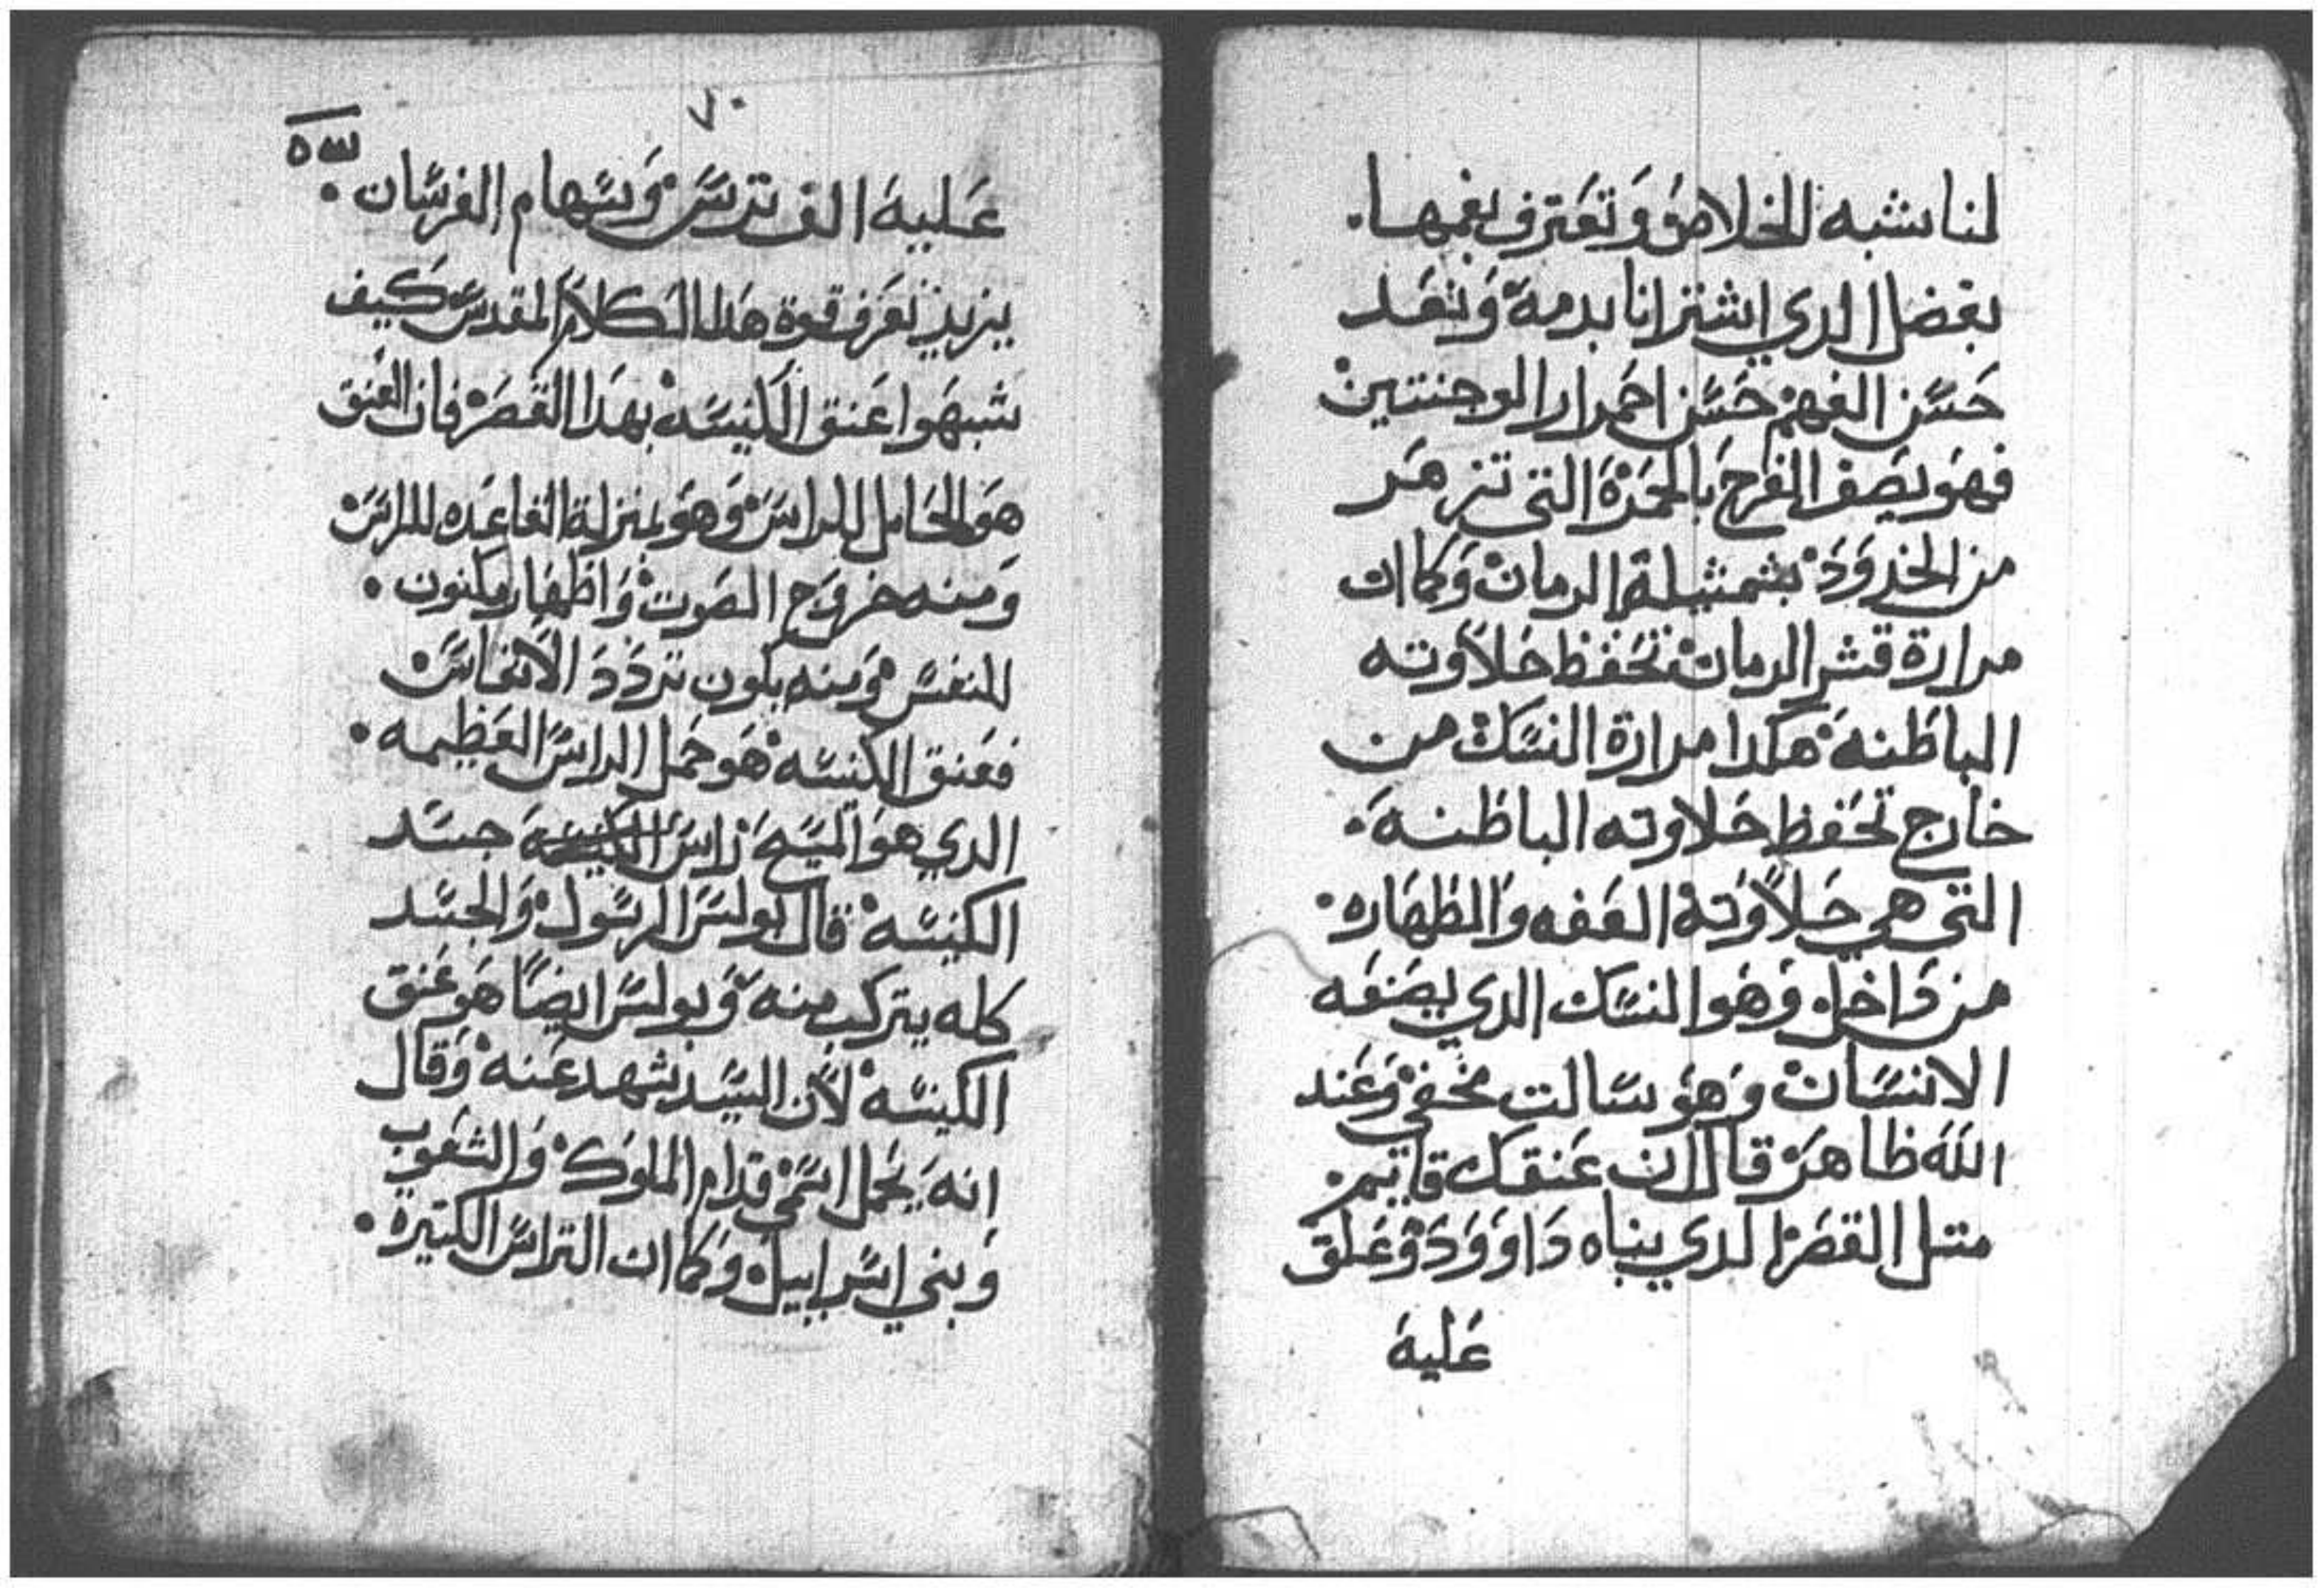 لنا شبه الخلاص وتعترف بفمها.
بفضل الدي اشترانا بدمه وتعد
حسن الفهم حسن احمرار الوجنتين
فهو يصف الفرح بالحمرة التي تزهر
من الخدود بتمثيلة الرمان وكما ان
مرارة قشر الرمان تحفظ حلاوته
الباطنه هكدا مرارة النسك من
خارج تحفظ حلاوته الباطنه.
التي هي حلاوته العفه والطهاره.
من داخل وهو النسك الدي يصنعه
الانسان وهو ساكت مخفي وعند
الله ظاهر قال ان عنقك قايم.
متل القصر الدي بناه داوود وعلق
عليه
عليه الف ترس وسهام الفرسان.
يريد تعرف قوة هدا الكلام المقدس كيف
شبهوا عنق الكنيسه بهدا القصر فان العنق
هو الحامل للراس وهو بمنزلة القاعده للراس
ومنه خروج الصوت واظهار مكنون.
النفس ومنه يكون تردد الانفاس
فعنق الكنيسه هو حمل الراس العظيمه.
الدي هو المسيح راس الكنيسه جسد
الكنيسه قال بولس الرسول والجسد
كله يتركب منه وبولس ايضا هو عنق
الكنيسه لان السيد شهد عنه وقال
انه يحمل اسمي قدام الملوك والشعوب
وبني اسراييل وكما ان التراس الكتيرة.